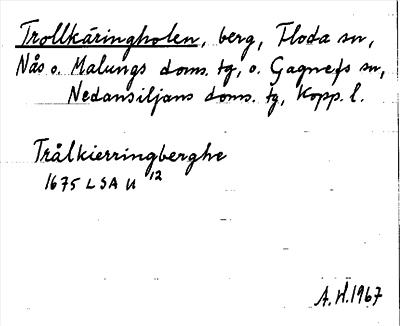 Trollkäringholen, berg, Floda sn,
Nås o. Malungs doms. tg, o. Gagnefs sn,
Nedansiljans doms. tg, Kopp. l.
Trålkierringberghe
1675 LSA U 12
A.H. 1967